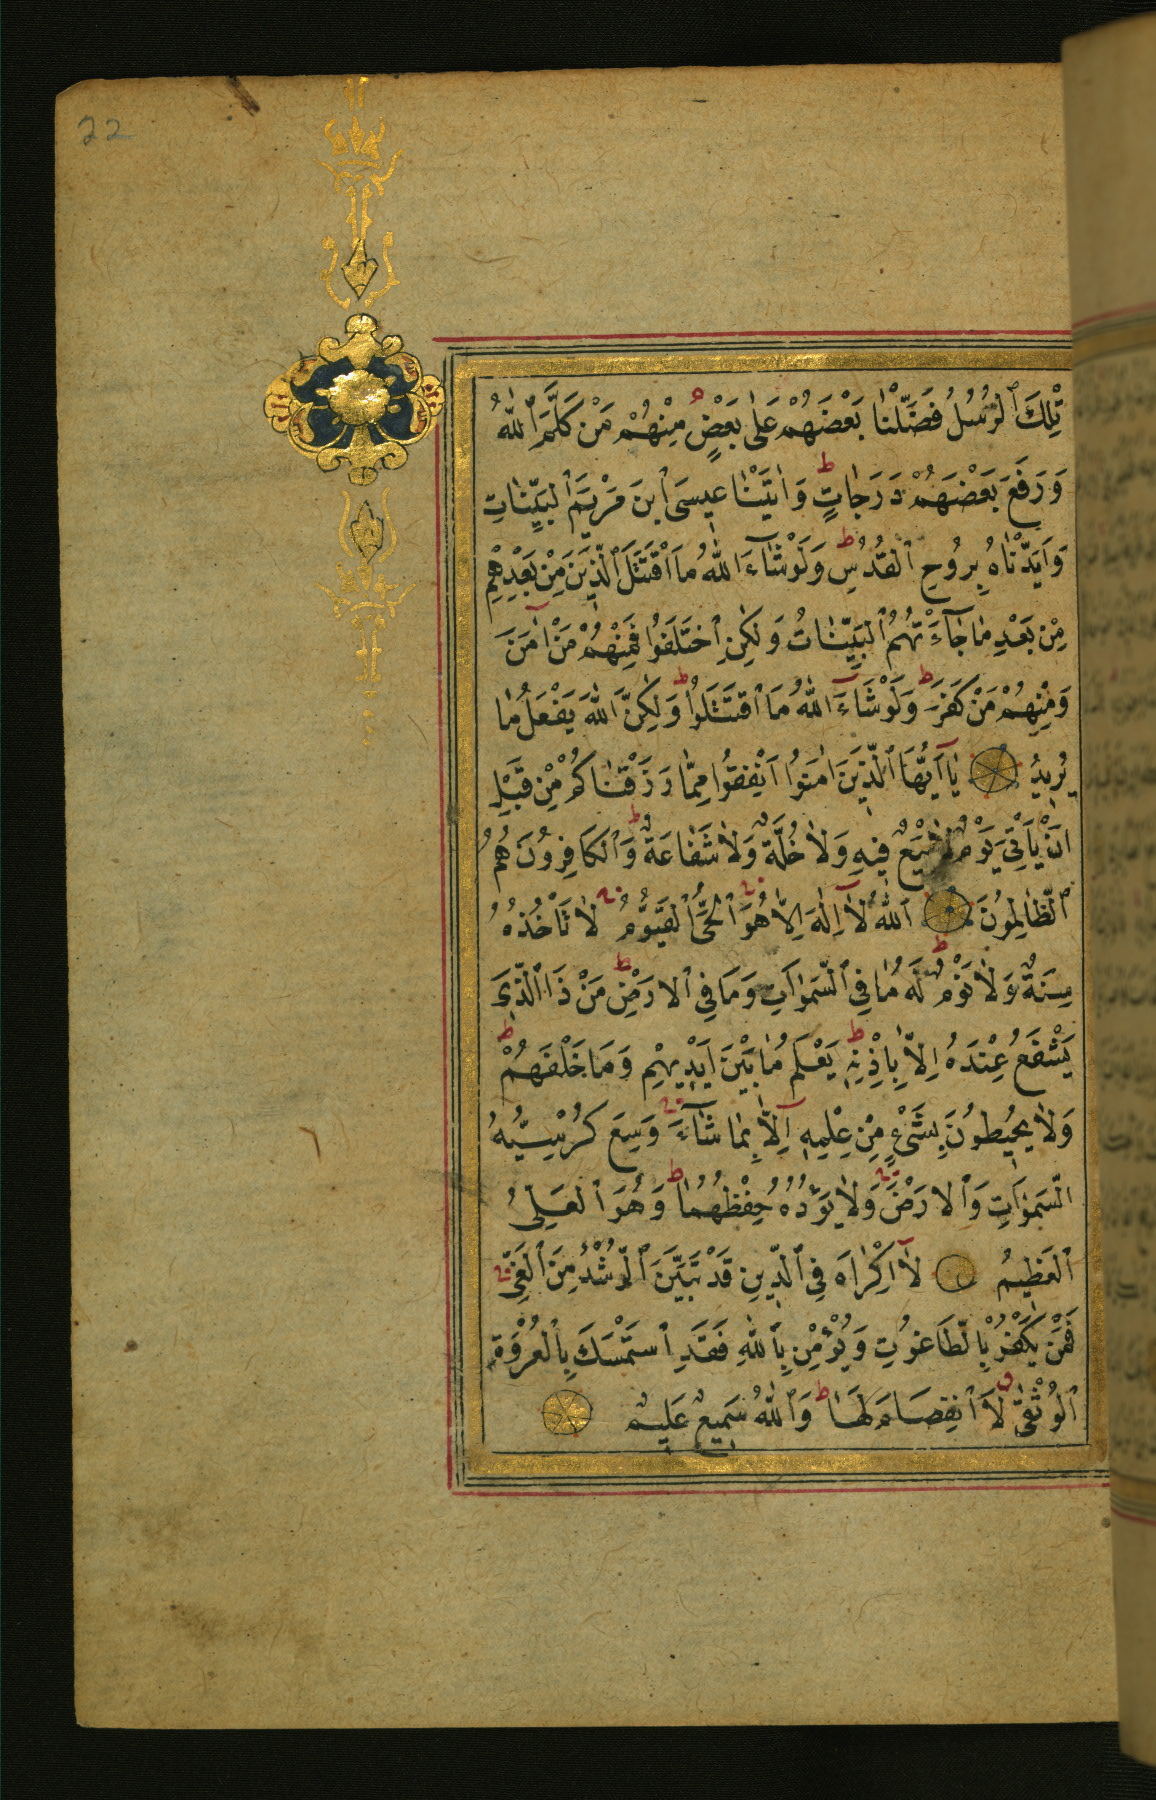 22
تِلْكَ ٱلرُّسُلُ فَضَّلْنَا بَعْضَهُمْ عَلٰى بَعْضٍ مِنْهُمْ مَنْ كَلَّمَ ٱللّٰهُ
وَرَفَعَ بَعْضَهُمْ دَرَجَاتٍ ط وَاٰتَيْنَا عِيسَى ٱبْنَ مَرْيَمَ ٱلْبَيِّنَاتِ
وَاَيَّدْنَاهُ بِرُوحِ ٱلْقُدُسِ ط وَلَوْ شَآءَ ٱللّٰهُ مَا ٱقْتَتَلَ ٱلَّذِينَ مِنْ بَعْدِهِمْ
مِنْ بَعْدِ مَا جَآءَتْهُمُ ٱلْبَيِّنَاتُ وَلٰكِنِ ٱخْتَلَفُوا فَمِنْهُمْ مَنْ اٰمَنَ
وَمِنْهُمْ مَنْ كَفَرَ ط وَلَوْ شَآءَ ٱللّٰهُ مَا ٱقْتَتَلُوا ط وَلٰكِنَّ ٱللّٰهَ يَفْعَلُ مَا
يُرِيدُ يَآ اَيُّهَا ٱلَّذِينَ اٰمَنُوا اَنْفِقُوا مِمَّا رَزَقْنَاكُمْ مِنْ قَبْلِ
اَنْ يَأْتِيَ يَوْمٌ لَا بَيْعٌ فِيهِ وَلَا خُلَّةٌ وَلَا شَفَاعَةٌ ط وَٱلْكَافِرُونَ هُمُ
ٱلظَّالِمُونَ ٱللّٰهُ لَآ اِلٰهَ اِلَّا هُوَ ٱلْحَىُّ ٱلْقَيُّومُ لَا تَأْخُذُهُ
سِنَةٌ وَلَا نَوْمٌ ط لَهُ مَا فِي ٱلسَّمٰوَاتِ وَمَا فِي ٱلْاَرْضِ ط مَنْ ذَا ٱلَّذِي
يَشْفَعُ عِنْدَهُ اِلَّا بِاِذْنِهِ ط يَعْلَمُ مَا بَيْنَ اَيْدِيهِمْ وَمَا خَلْفَهُمْ ط
وَلَا يُحِيطُونَ بِشَىْءٍ مِنْ عِلْمِهِ اِلَّا بِمَا شَآءَ وَسِعَ كُرْسِيُّهُ
ٱلسَّمٰوَاتِ وَٱلْاَرْضَ وَلَا يَؤُدُهُ حِفْظُهُمَا ط وَهُوَ ٱلْعَلِيُّ
ٱلْعَظِيمُ لَآ اِكْرَاهَ فِي ٱلدِّينِ قَدْ تَبَيَّنَ ٱلرُّشْدُ مِنَ ٱلْغَيِّ
فَمَنْ يَكْفُرْ بِٱلطَّاغُوتِ وَيُؤْمِنْ بِٱللّٰهِ فَقَدِ ٱسْتَمْسَكَ بِٱلْعُرْوَةِ
ٱلْوُثْقٰى لَا ٱنْفِصَامَ لَهَا ط وَٱللّٰهُ سَمِيعٌ عَلِيمٌ